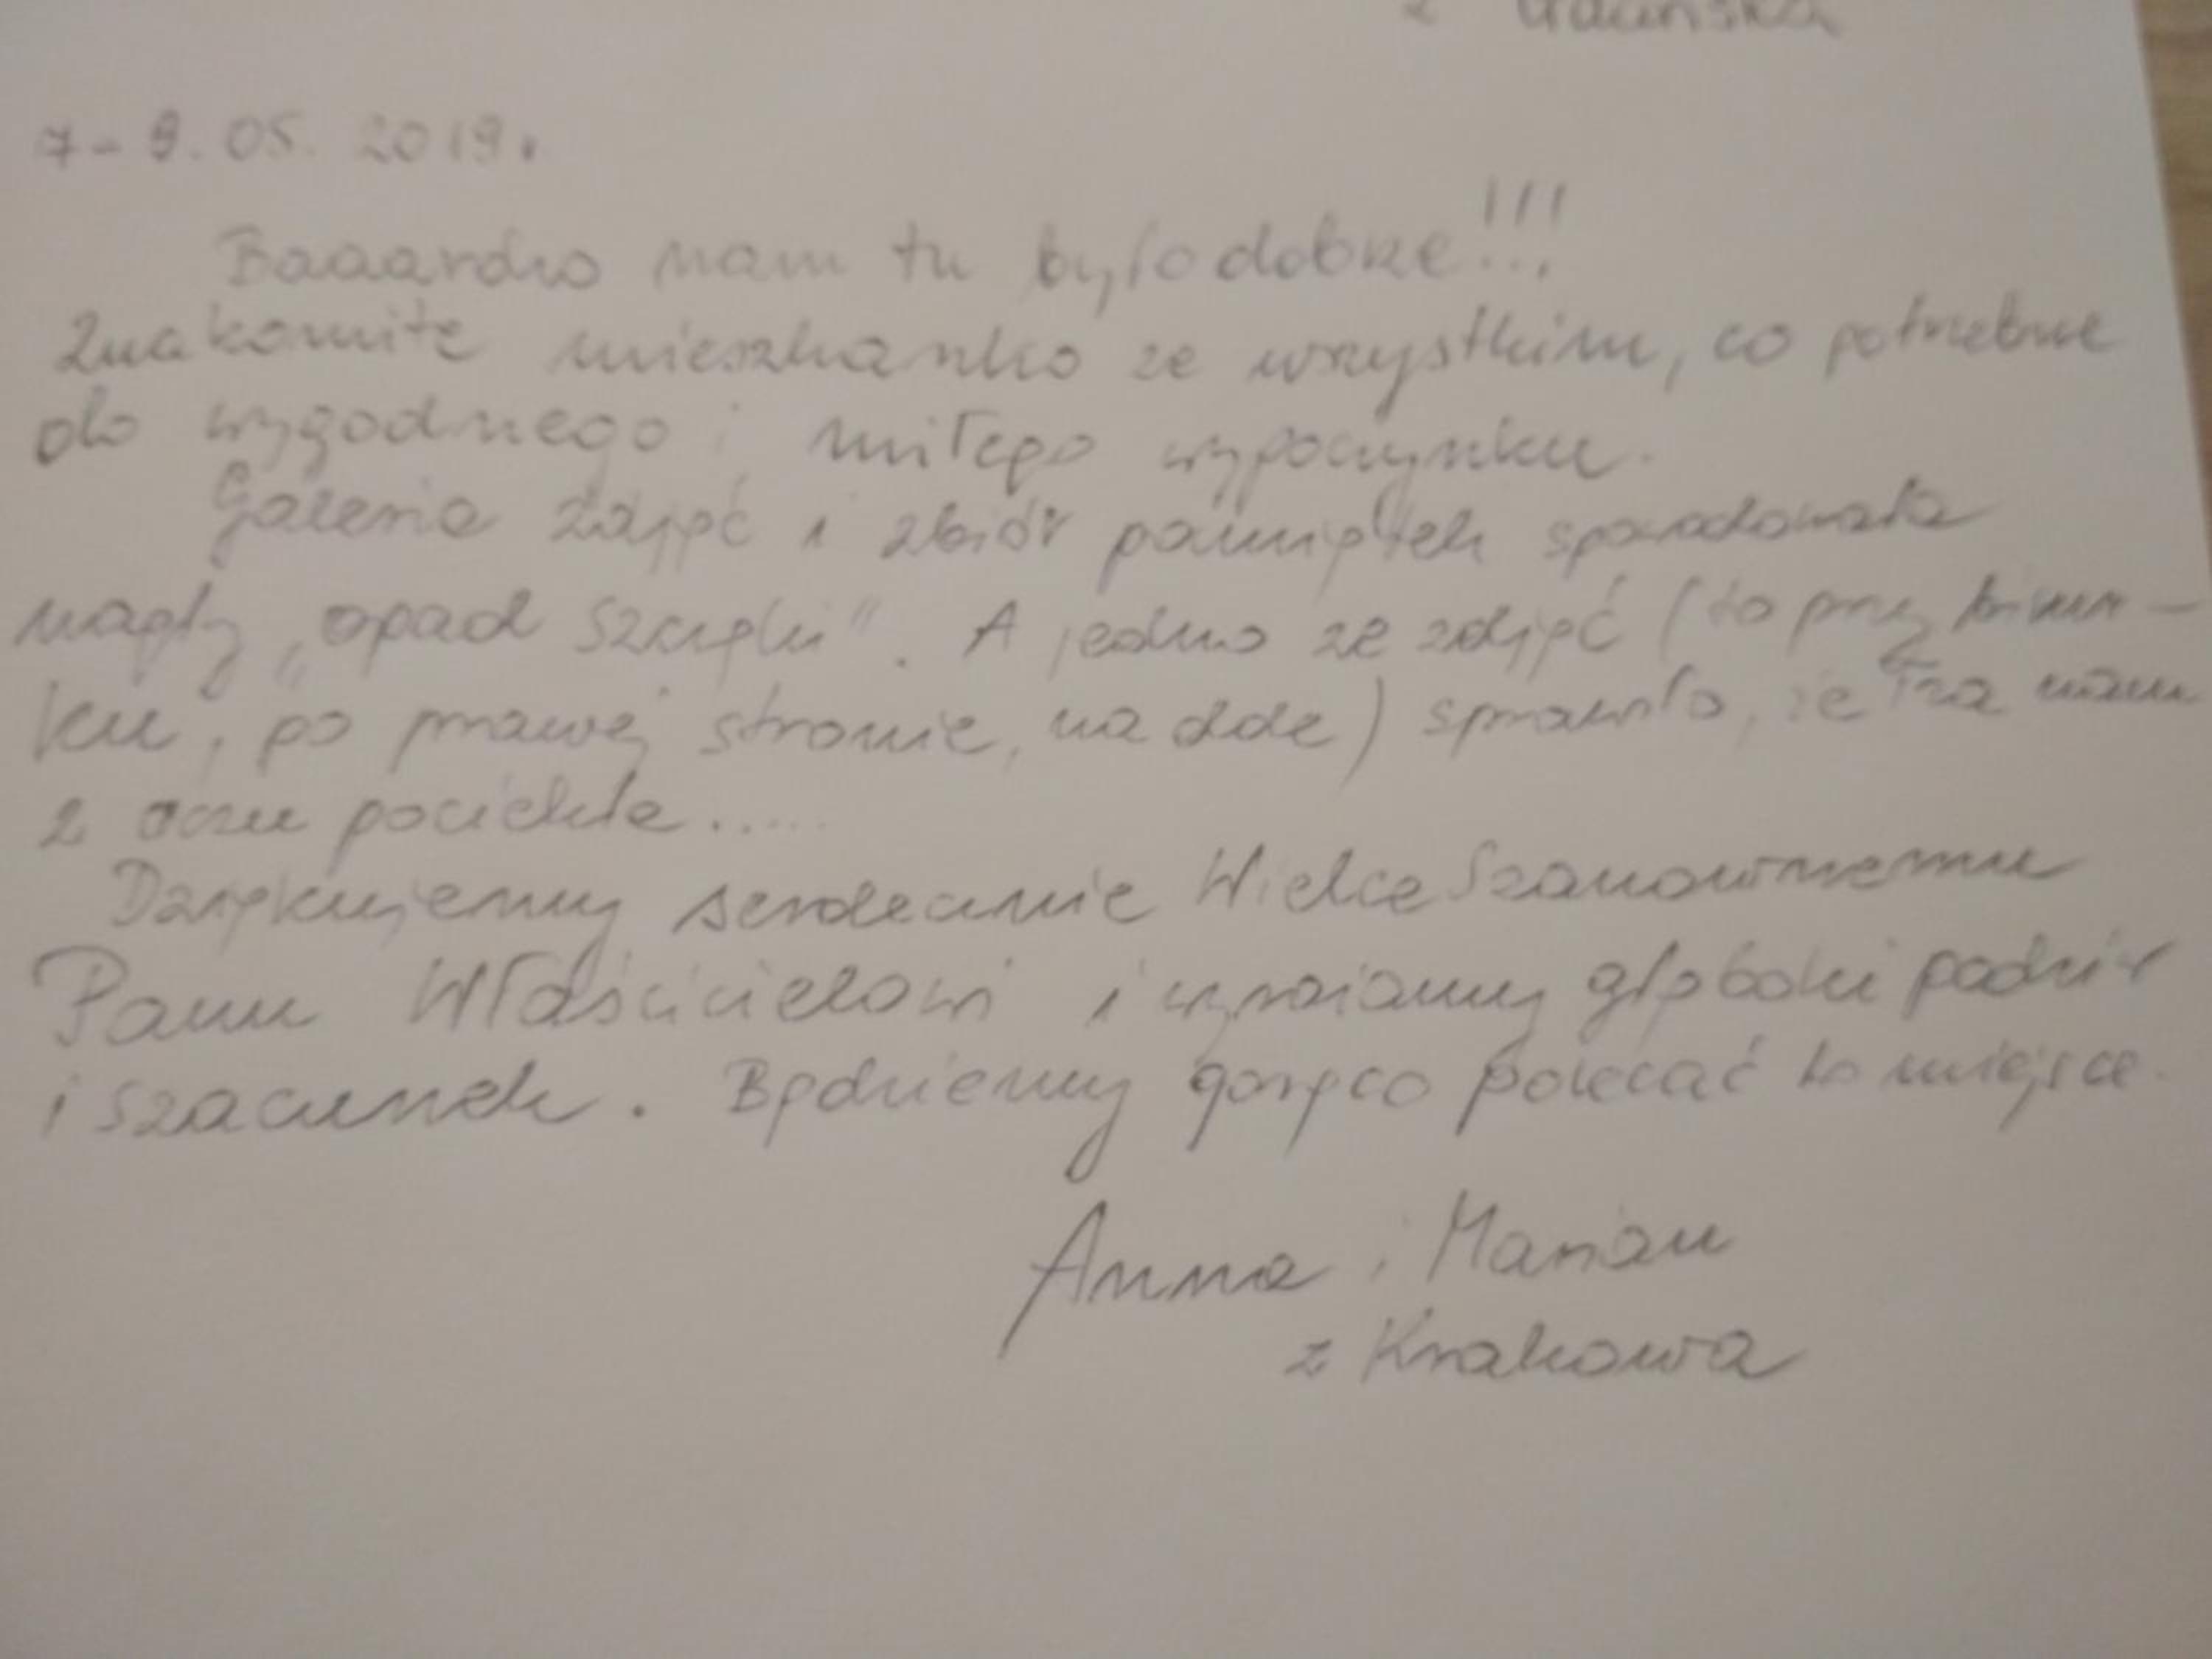 z Gdańska
7-9.05.2019.
Baaardzo nam tu było dobrze!!!
Znakomite mieszkanko ze wszystkim, co potrzebne
do wygodnego i miłego wypoczynku.
Galeria zdjęć i zbiór pamiątek spowodowała
nagły „opad szczęki". A jedno ze zdjęć (to przy
ku, po prawej stronie, na dole) sprawiło, że łza nam
z oczu pociekła.....
Dziękujemy serdecznie Wielce Szanownemu
Panu Właścicielowi i wyrażamy głęboki podziw
i szacunek. Będziemy gorąco polecać to miejsce.
Anna i Marian
z Krakowa